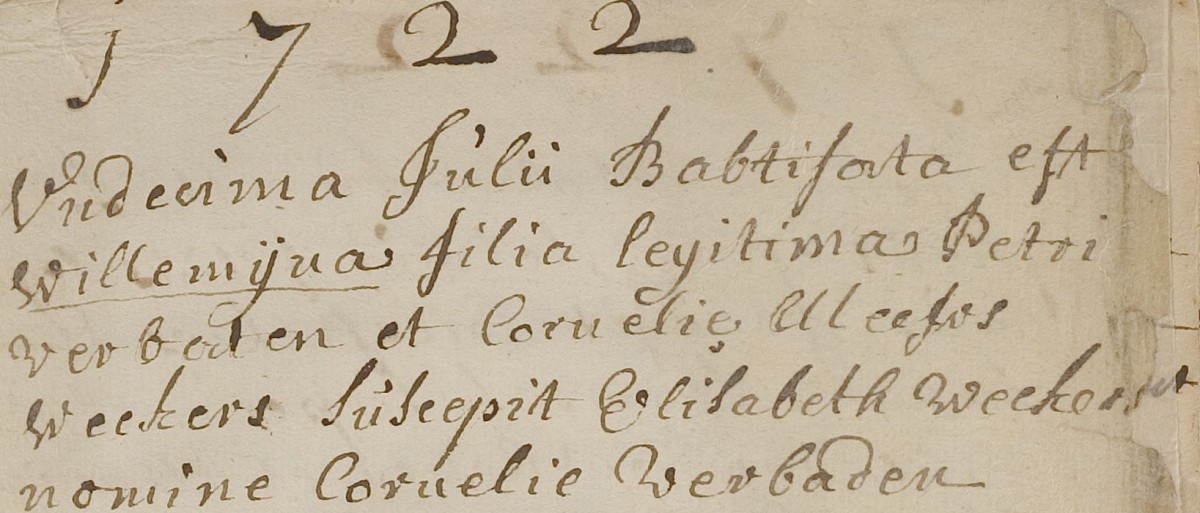 1722
Vndecima Julii Babtisata est
Willemijna filia legitima Petri
verbaten et Cornelię
weekers suscepit Elisabeth weekers
nomine Cornelie Verbaden